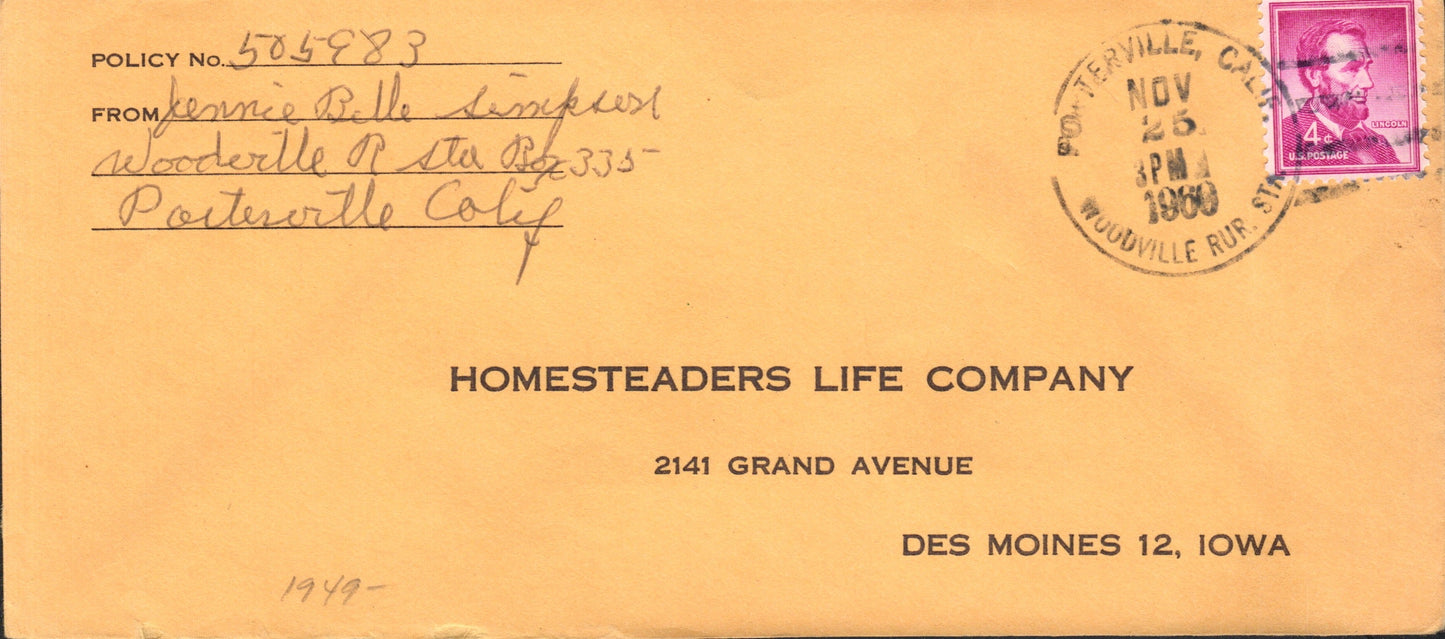 POLICY No. 505983
FROM Jennie Belle Simpson
Woodville R Sta Box 335
Porterville Calif
PORTERVILLE, CALIF.
NOV
25
3PM
1960
WOODVILLE RUR. STA.
LINCOLN
4¢
U.S. POSTAGE
HOMESTEADERS LIFE COMPANY
2141 GRAND AVENUE
DES MOINES 12, IOWA
1949-